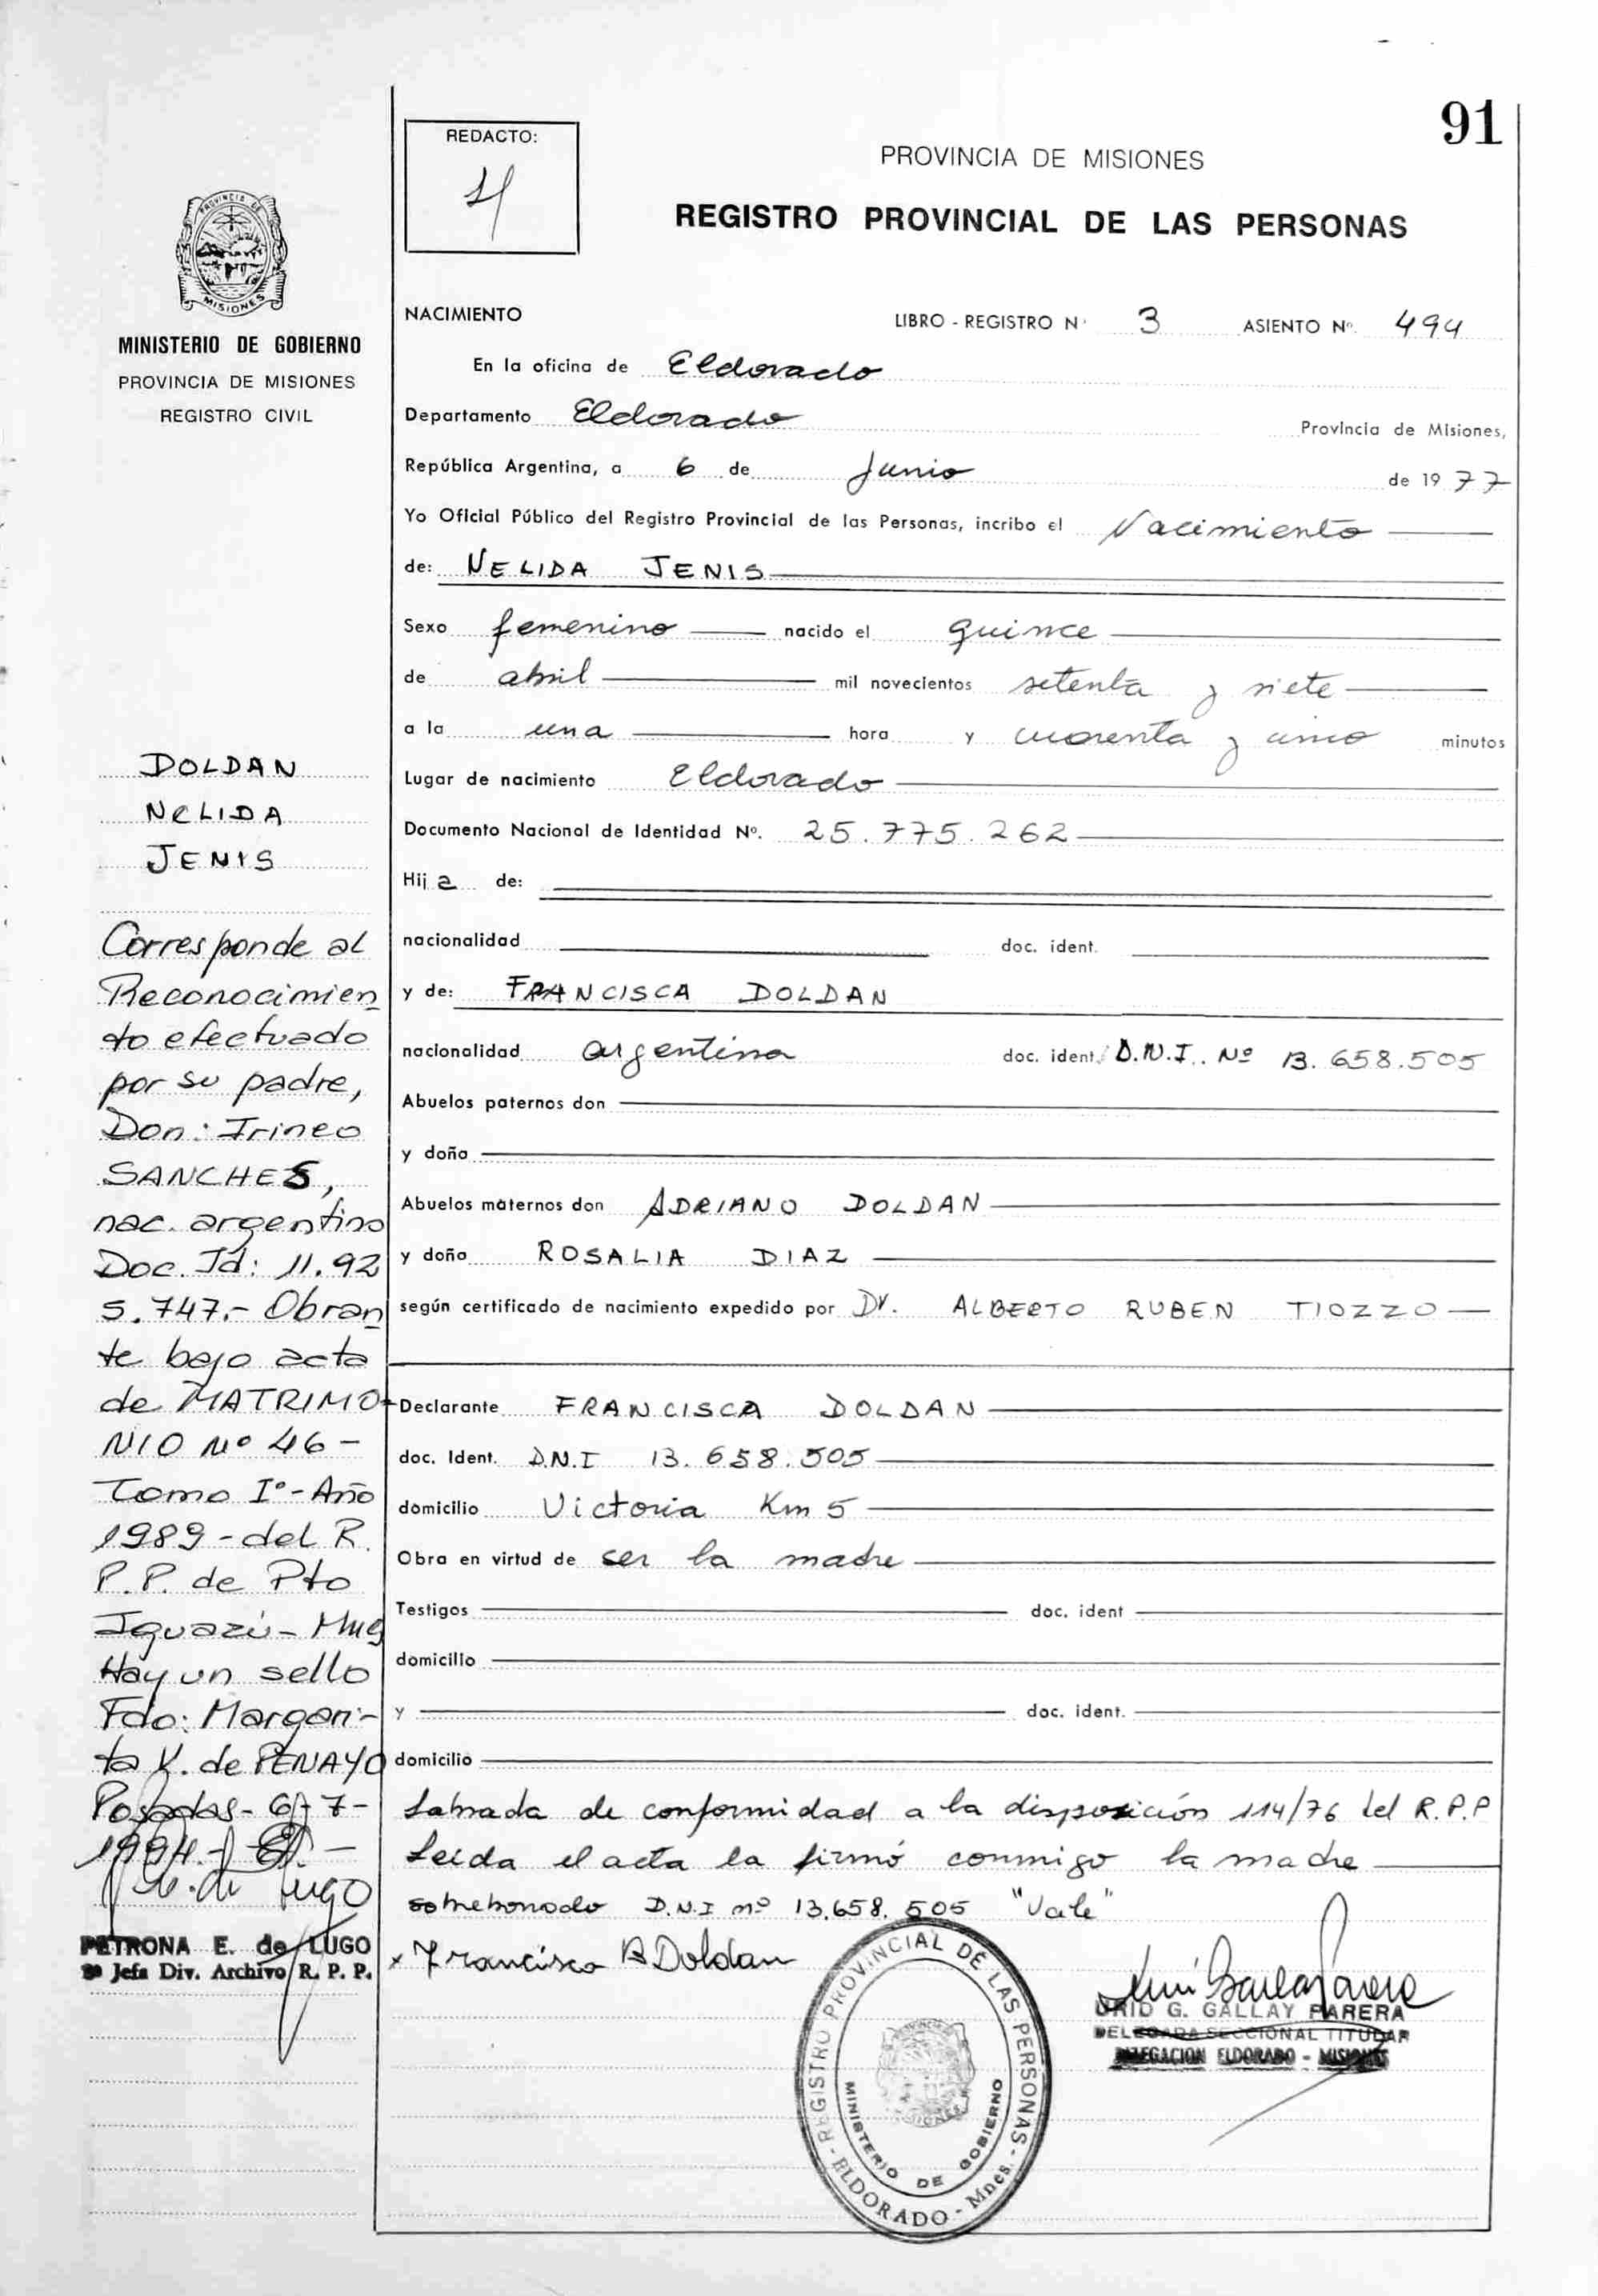 91
REDACTO:
PROVINCIA DE MISIONES
REGISTRO PROVINCIAL DE LAS PERSONAS
PROVINCIA DE
MISIONES
MINISTERIO DE GOBIERNO
PROVINCIA DE MISIONES
REGISTRO CIVIL
NACIMIENTO LIBRO - REGISTRO Nº 3 ASIENTO Nº. 494
En la oficina de Eldorado
Departamento Eldorado Provincia de Misiones,
República Argentina, a 6 de Junio de 1977
Yo Oficial Público del Registro Provincial de las Personas, incribo el Nacimiento
de: NELIDA JENIS
Sexo femenino nacido el quince
de abril mil novecientos setenta y siete
a la una hora y cuarenta y cinco minutos
Lugar de nacimiento Eldorado
Documento Nacional de Identidad Nº. 25.775.262
Hija de:
nacionalidad doc. ident.
y de: FRANCISCA DOLDAN
nacionalidad argentina doc. ident. D.N.I. Nº 13.658.505
Abuelos paternos don
y doña
Abuelos maternos don ADRIANO DOLDAN
y doña ROSALIA DIAZ
según certificado de nacimiento expedido por Dr. ALBERTO RUBEN TIOZZO
Declarante FRANCISCA DOLDAN
doc. Ident. D.N.I 13.658.505
domicilio Victoria Km 5
Obra en virtud de ser la madre
Testigos doc. ident
domicilio
y doc. ident.
domicilio
Labrada de conformidad a la disposición 114/76 del R.P.P
Leida el acta la firmó conmigo la madre
sobreborrado D.N.I nº 13.658.505 "Vale"
x Francisca B Doldan
URID G. GALLAY PARERA
DELEGADA SECCIONAL TITULAR
DELEGACION ELDORADO - MISIONES
REGISTRO PROVINCIAL DE LAS PERSONAS - ELDORADO - Mnes. -
MINISTERIO DE GOBIERNO
DOLDAN
NELIDA
JENIS
Corresponde al
Reconocimien
to efectuado
por su padre,
Don: Irineo
SANCHES,
nac. argentino
Doc. Id: 11.92
5.747.- Obran
te bajo acta
de MATRIMO-
NIO Nº 46 -
Tomo Iº - Año
1989 - del R.
P.P. de Pto
Iguazú -
Hay un sello
Fdo: Margari-
ta V. de PENAYO
Posadas - 6-7-
1994.-
E. de Lugo
PETRONA E. de LUGO
Jefa Div. Archivo R. P. P.